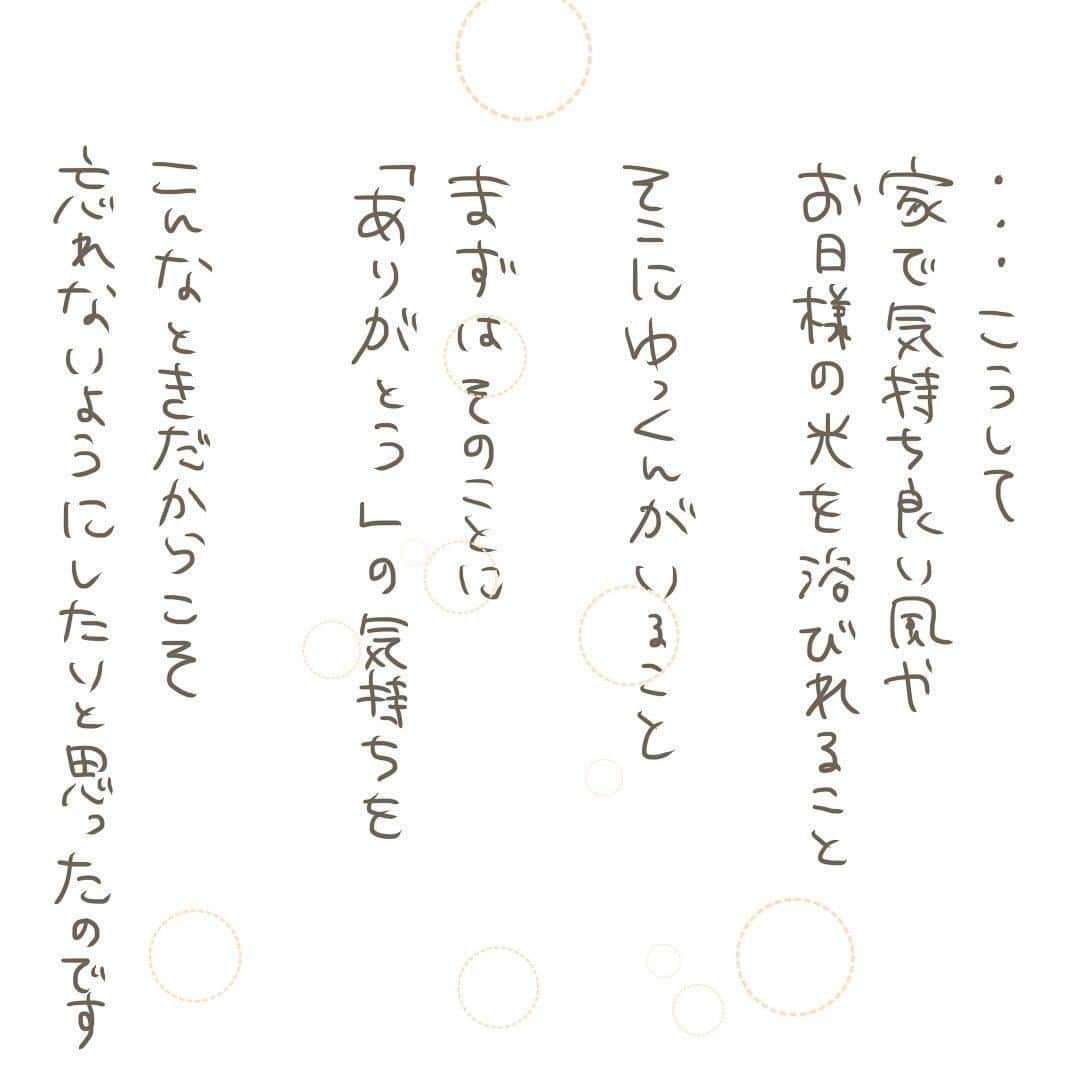 ・・・こうして
家で気持ち良い風や
お日様の光を浴びれること
そこにゆっくんがいること
まずはそのことに
「ありがとう」の気持ちを
こんなときだからこそ
忘れないようにしたいと思ったのです